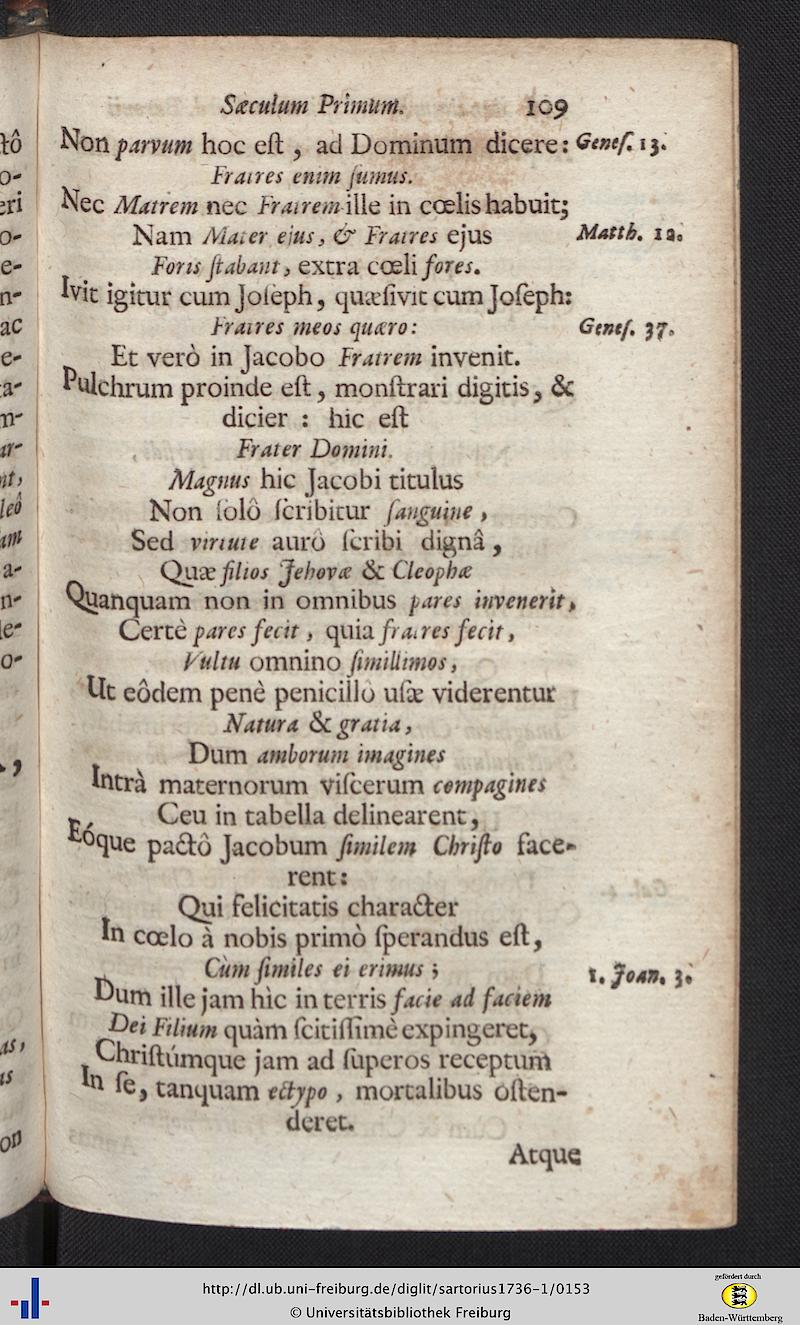 Sæculum Primum. 109
Non parvum hoc eſt, ad Dominum dicere: Geneſ. 13.
Fratres enim ſumus.
Nec Matrem nec Fratrem ille in cœlis habuit;
Nam Mater ejus, & Fratres ejus Matth. 12.
Foris ſtabant, extra cœli fores.
Ivit igitur cum Joſeph, quæſivit cum Joſeph:
Fratres meos quæro: Geneſ. 37.
Et verò in Jacobo Fratrem invenit.
Pulchrum proinde eſt, monſtrari digitis, &
dicier : hic eſt
Frater Domini.
Magnus hic Jacobi titulus
Non ſolô ſcribitur ſanguine,
Sed virtute aurô ſcribi dignâ,
Quæ filios Jehovæ & Cleophæ
Quanquam non in omnibus pares invenerit,
Certè pares fecit, quia fratres fecit,
Vultu omnino ſimillimos,
Ut eôdem penè penicillo uſæ viderentur
Natura & gratia,
Dum amborum imagines
Intrà maternorum viſcerum compagines
Ceu in tabella delinearent,
Eóque pactô Jacobum ſimilem Chriſto face-
rent:
Qui felicitatis character
In cœlo à nobis primò ſperandus eſt,
Cùm ſimiles ei erimus; 1. Joan. 3.
Dum ille jam hìc in terris facie ad faciem
Dei Filium quàm ſcitiſſimè expingeret,
Chriſtúmque jam ad ſuperos receptum
In ſe, tanquam ectypo, mortalibus oſten-
deret.
Atque
http://dl.ub.uni-freiburg.de/diglit/sartorius1736-1/0153
© Universitätsbibliothek Freiburg
gefördert durch
Baden-Württemberg